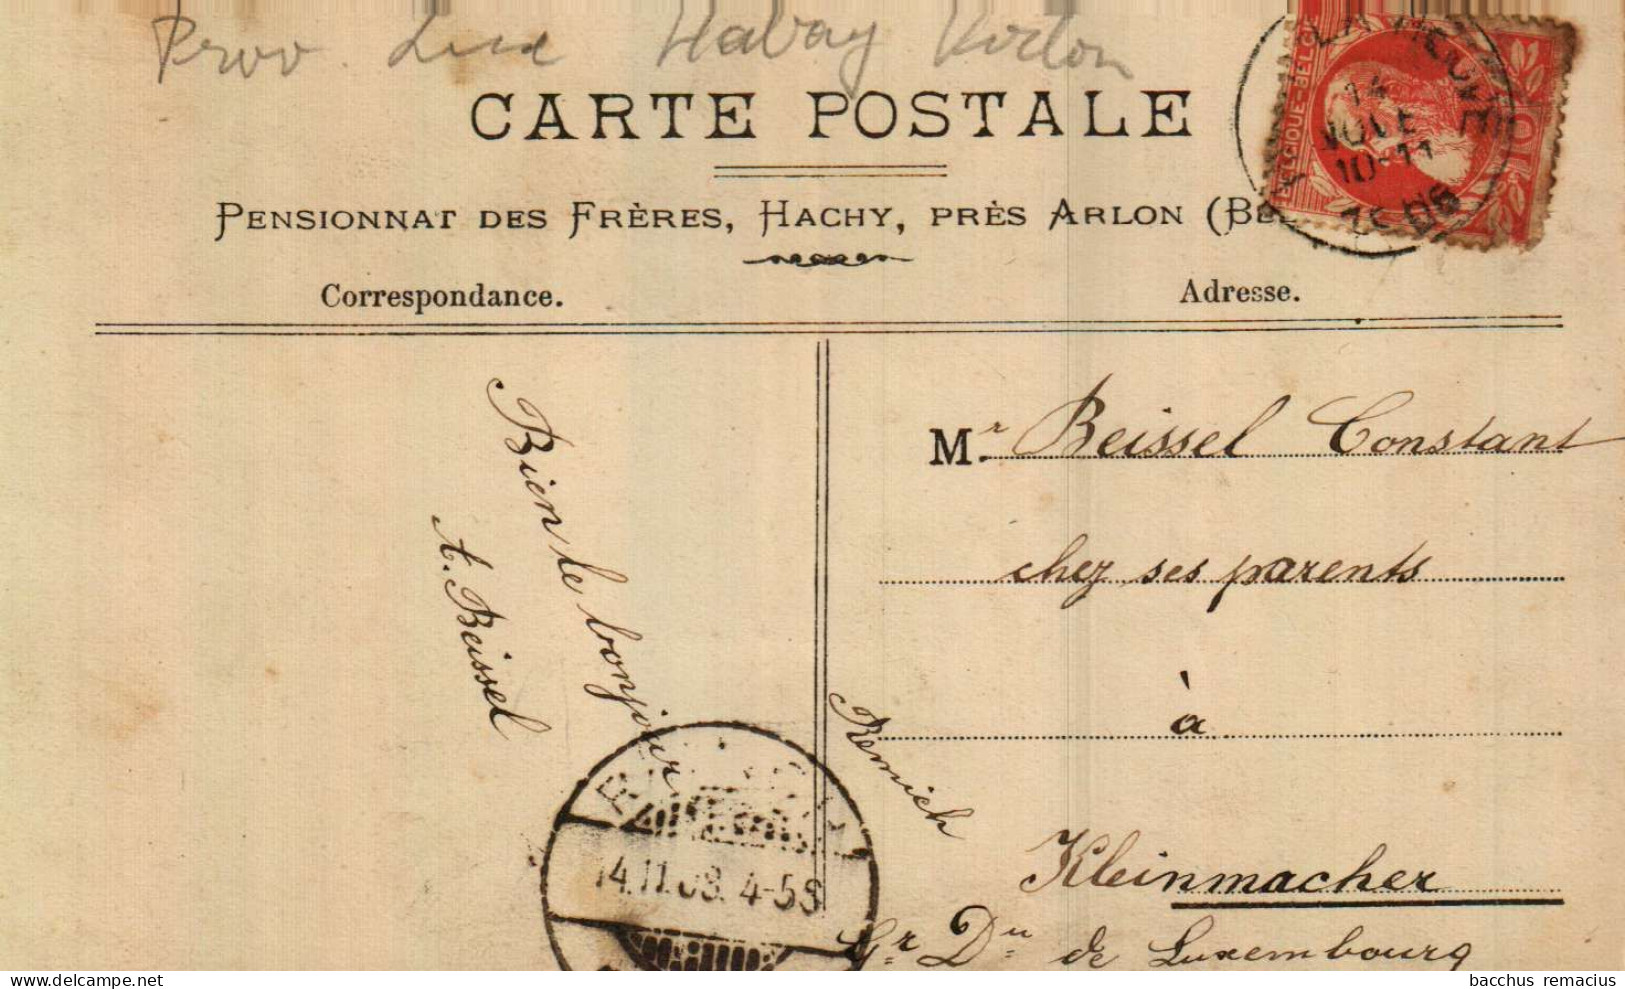 Prov. Lux Habay Virton
CARTE POSTALE
PENSIONNAT DES FRÈRES, HACHY, PRÈS ARLON (BE
Correspondance.
Adresse.
BELGIQUE-BELG
10
14
NOVE
10-11
Bien le bonjour
A. Beissel
Mr. Beissel Constant
chez ses parents
à
Remich
Kleinmacher
Gr. Du de Luxembourg
14.11.08. 4-5S
bacchus remacius